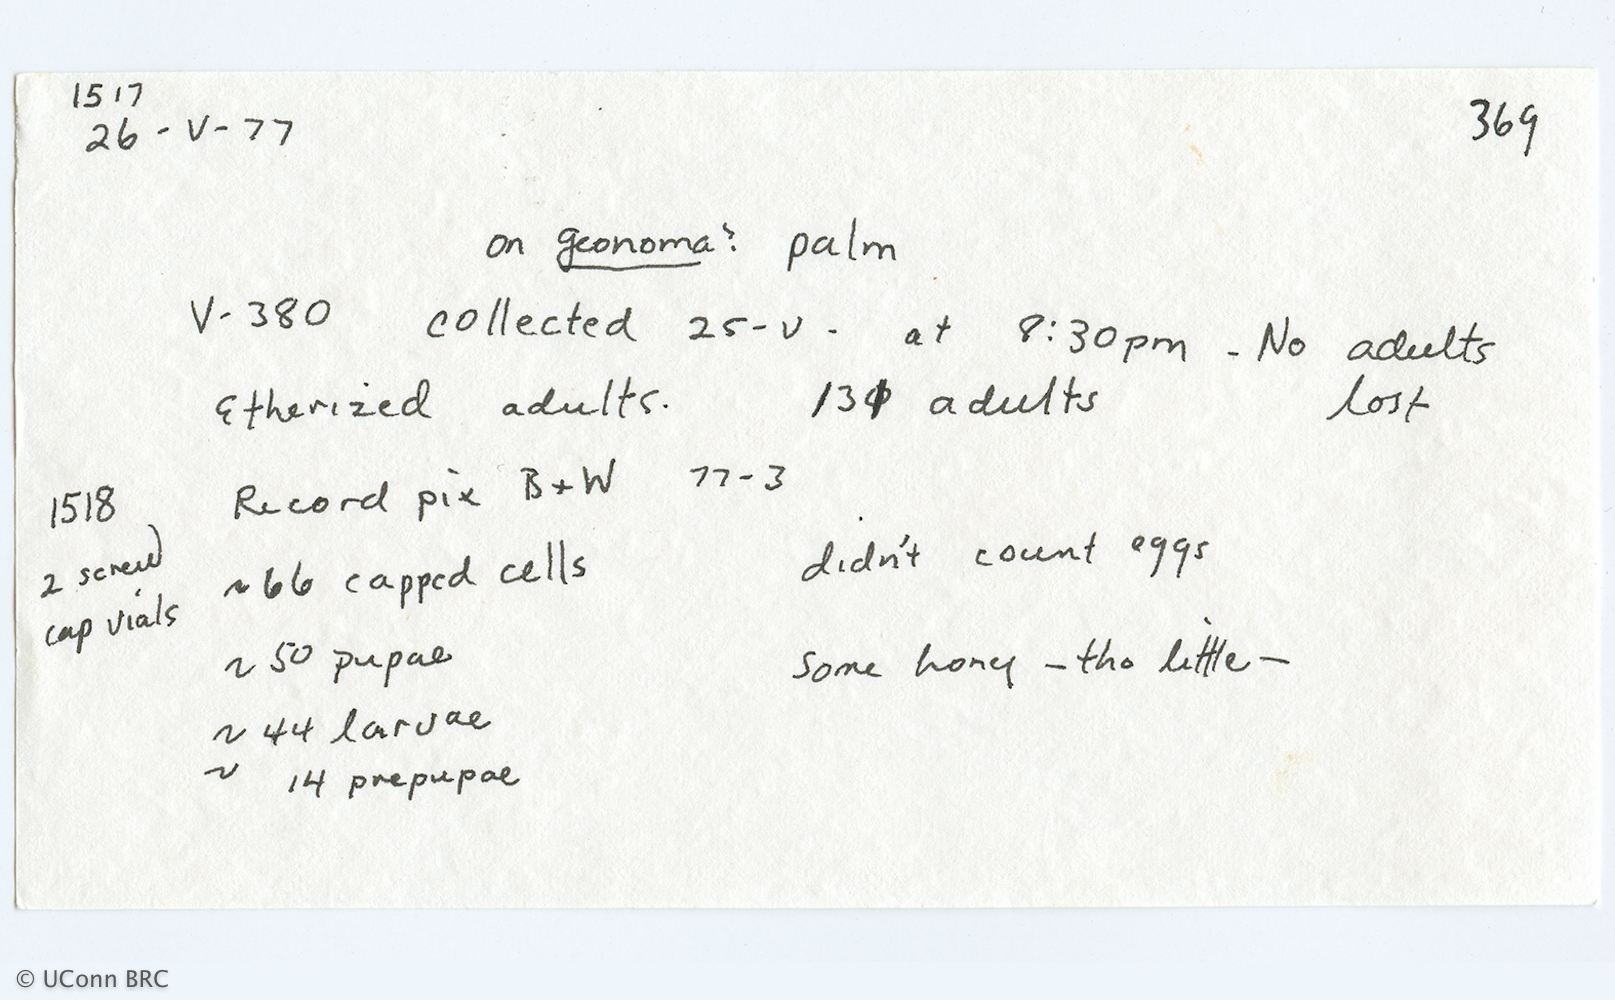 1517
26-V-77
369
on geonoma? palm
V-380 collected 25-V. at 8:30pm - No adults
Etherized adults. adults lost
1518 Record pix B+W 77-3
2 screw cap vials
~66 capped cells didn't count eggs
~50 pupae some honey - tho little -
~44 larvae
~ 14 prepupae
© UConn BRC